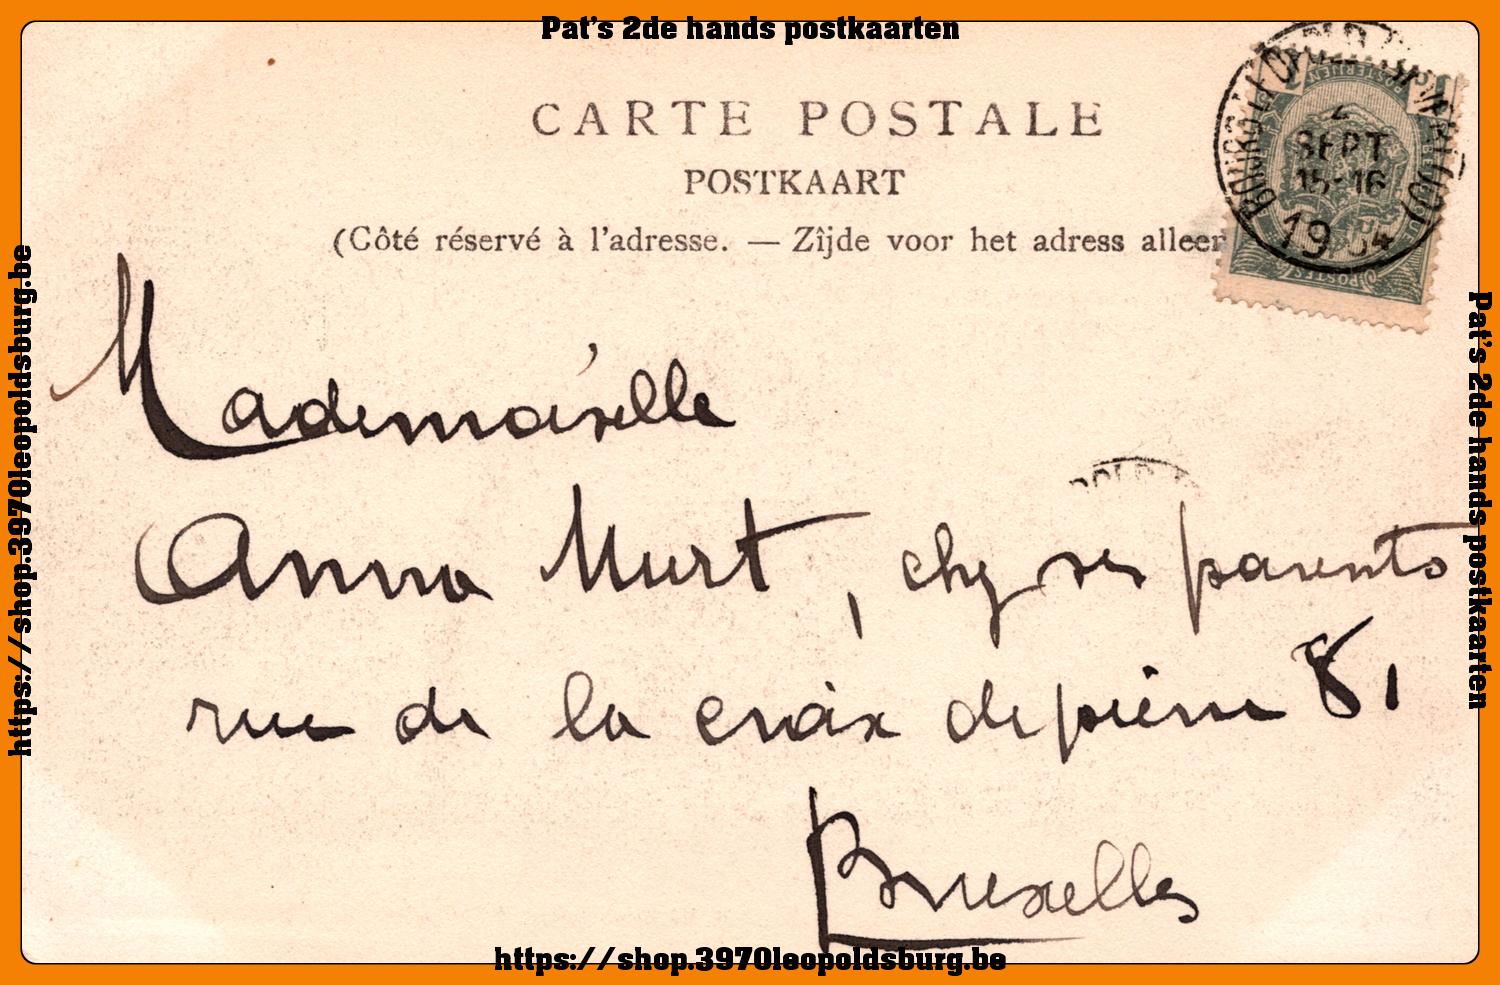 Pat's 2de hands postkaarten
CARTE POSTALE
POSTKAART
(Côté réservé à l'adresse. — Zîjde voor het adress alleen
SEPT
15-16
1904
POSTERIJEN
POSTES
Mademoiselle
Anna Murt, chez ses parents
rue de la croix de pierre 81
Bruxelles
https://shop.3970leopoldsburg.be
Pat's 2de hands postkaarten
https://shop.3970leopoldsburg.be